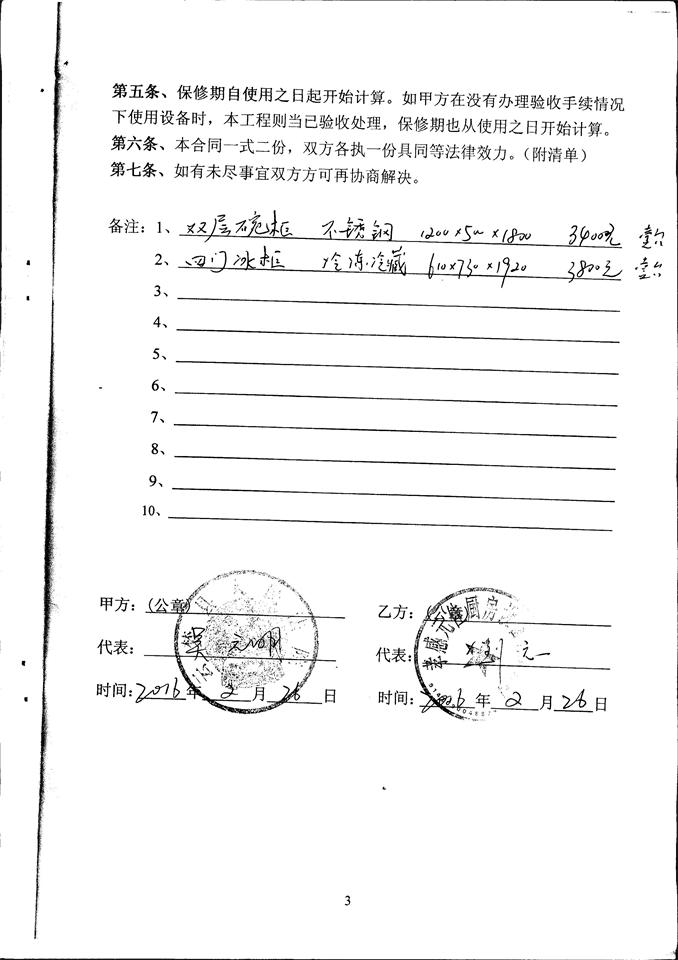 第五条、保修期自使用之日起开始计算。如甲方在没有办理验收手续情况
下使用设备时，本工程则当已验收处理，保修期也从使用之日开始计算。
第六条、本合同一式二份，双方各执一份具同等法律效力。（附清单）
第七条、如有未尽事宜双方方可再协商解决。
备注：1、双层碗柜 不锈钢 1200×500×1800 3400元 壹台
2、四门冰柜 冷冻.冷藏 610×730×1920 3800元 壹台
3、
4、
5、
6、
7、
8、
9、
10、
甲方：(公章)
代表：吴元明
时间：2016年2月26日
乙方：(公章)
孝感元
厨房
代表：刘元一
时间：2016年2月26日
3